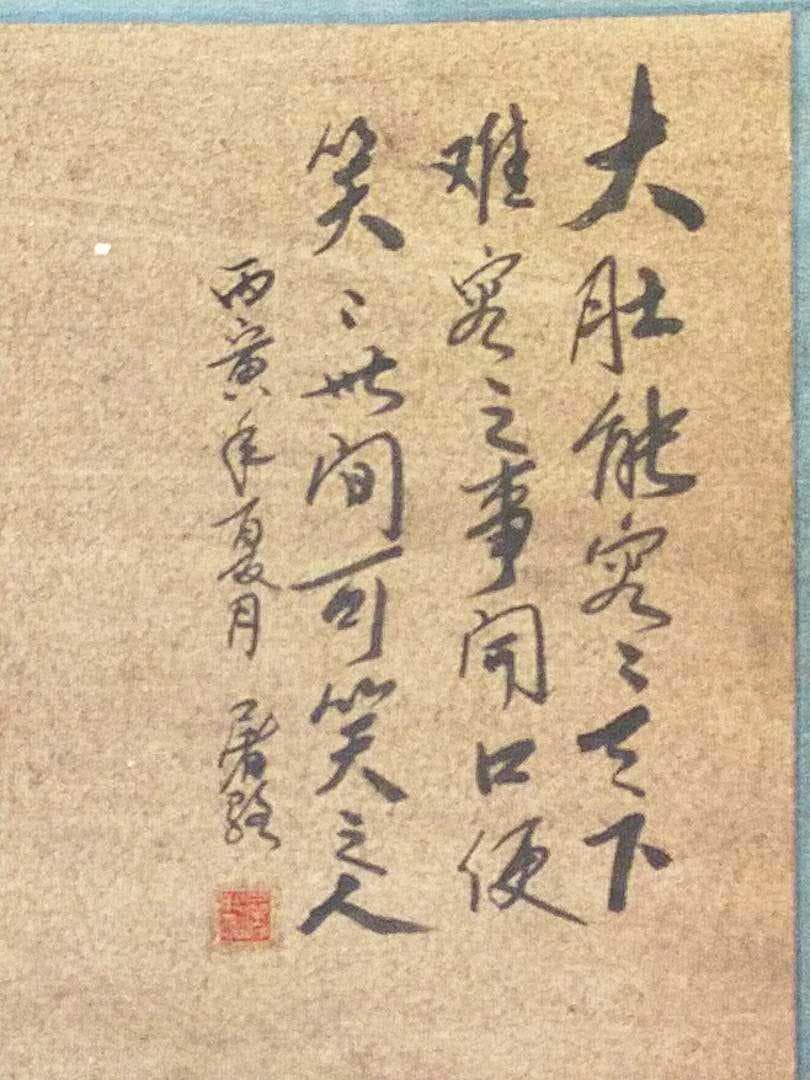 大肚能容〻天下
难容之事开口便
笑〻世间可笑之人
丙寅年夏月 屠